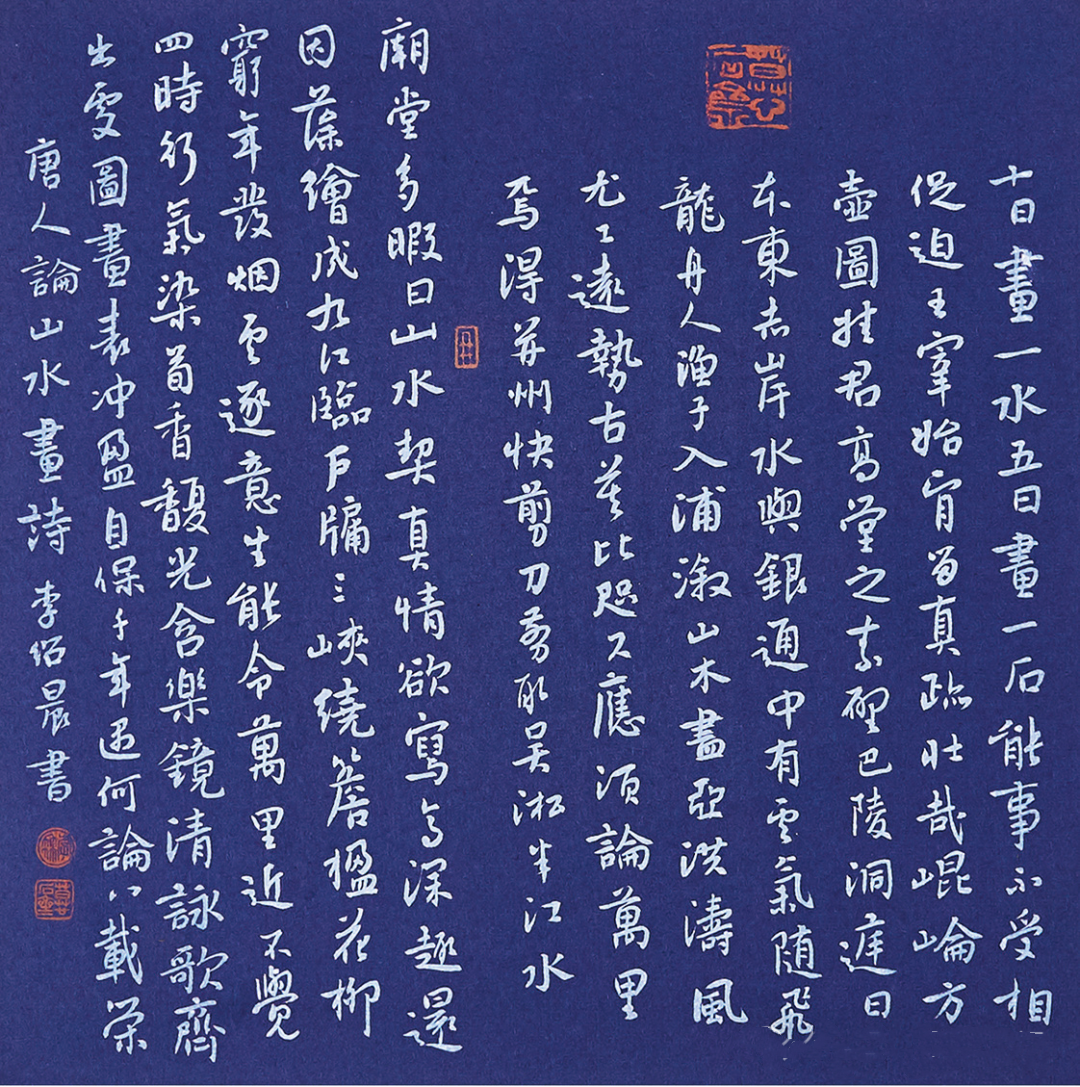 十日畫一水五日畫一石能事不受相
促迫王宰始肯留真跡壯哉崐崘方
壺圖挂君高堂之素壁巴陵洞庭日
本東赤岸水與銀通中有雲氣随飛
龍舟人漁子入浦漵山木盡亞洪濤風
尤工遠勢古莫比咫尺應須論萬里
焉得并州快剪刀剪取吴淞半江水
廟堂多暇日山水契真情欲寫高深趣還
因藻繪成九江臨户牖三峽繞簷楹花柳
窮年發烟雲逐意生能令萬里近不覺
四時行氣染荀香馥光含樂鏡清詠歌齊
出處圖畫表冲盈自保千年遇何論八載榮
唐人論山水畫詩 李绍晨書